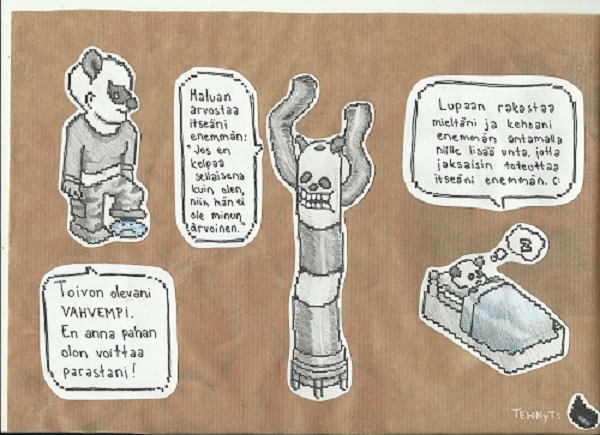 Haluan
arvostaa
itseäni
enemmän:
"Jos en
kelpaa
sellaisena
kuin olen,
niin hän ei
ole minun
arvoinen."
Lupaan rakastaa
mieltäni ja kehoani
enemmän antamalla
niille lisää unta, jotta
jaksaisin toteuttaa
itseäni enemmän. C:
Z
Toivon olevani
VAHVEMPI.
En anna pahan
olon voittaa
parastani!
TEHNYT: